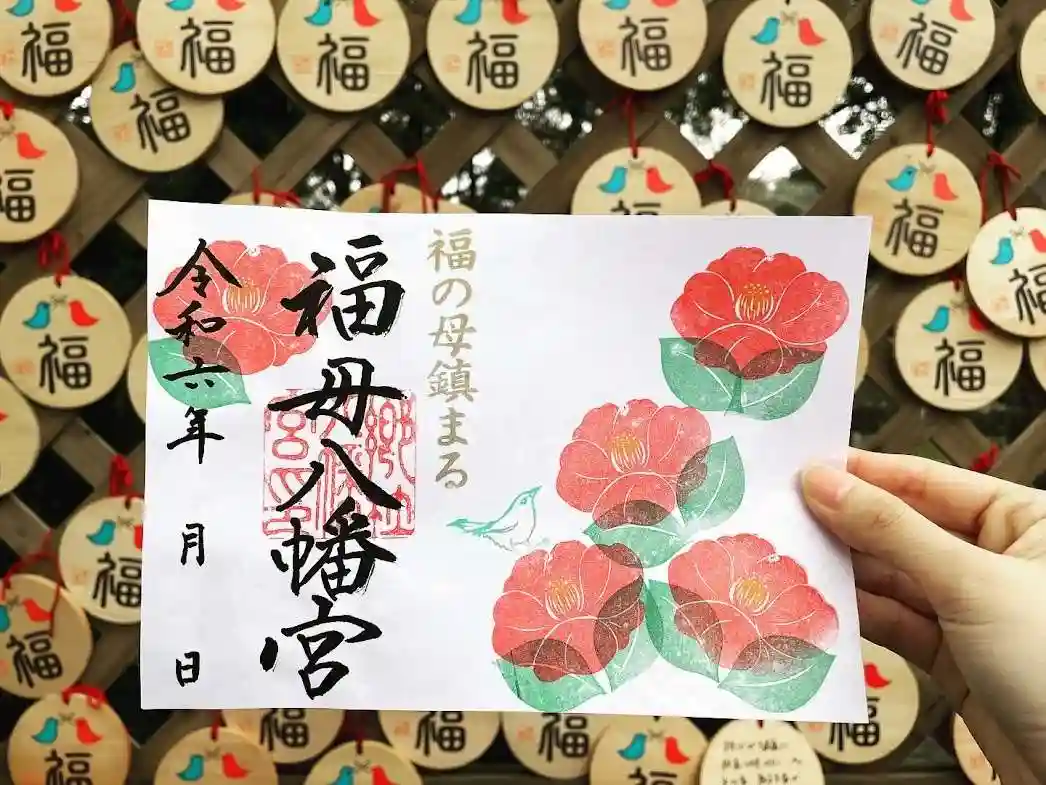 福の母鎮まる
福母八幡宮
令和六年 月 日
福
福
福
福
福
福
福
福
福
福
福
福
福
福
福
福
福
福
福
福